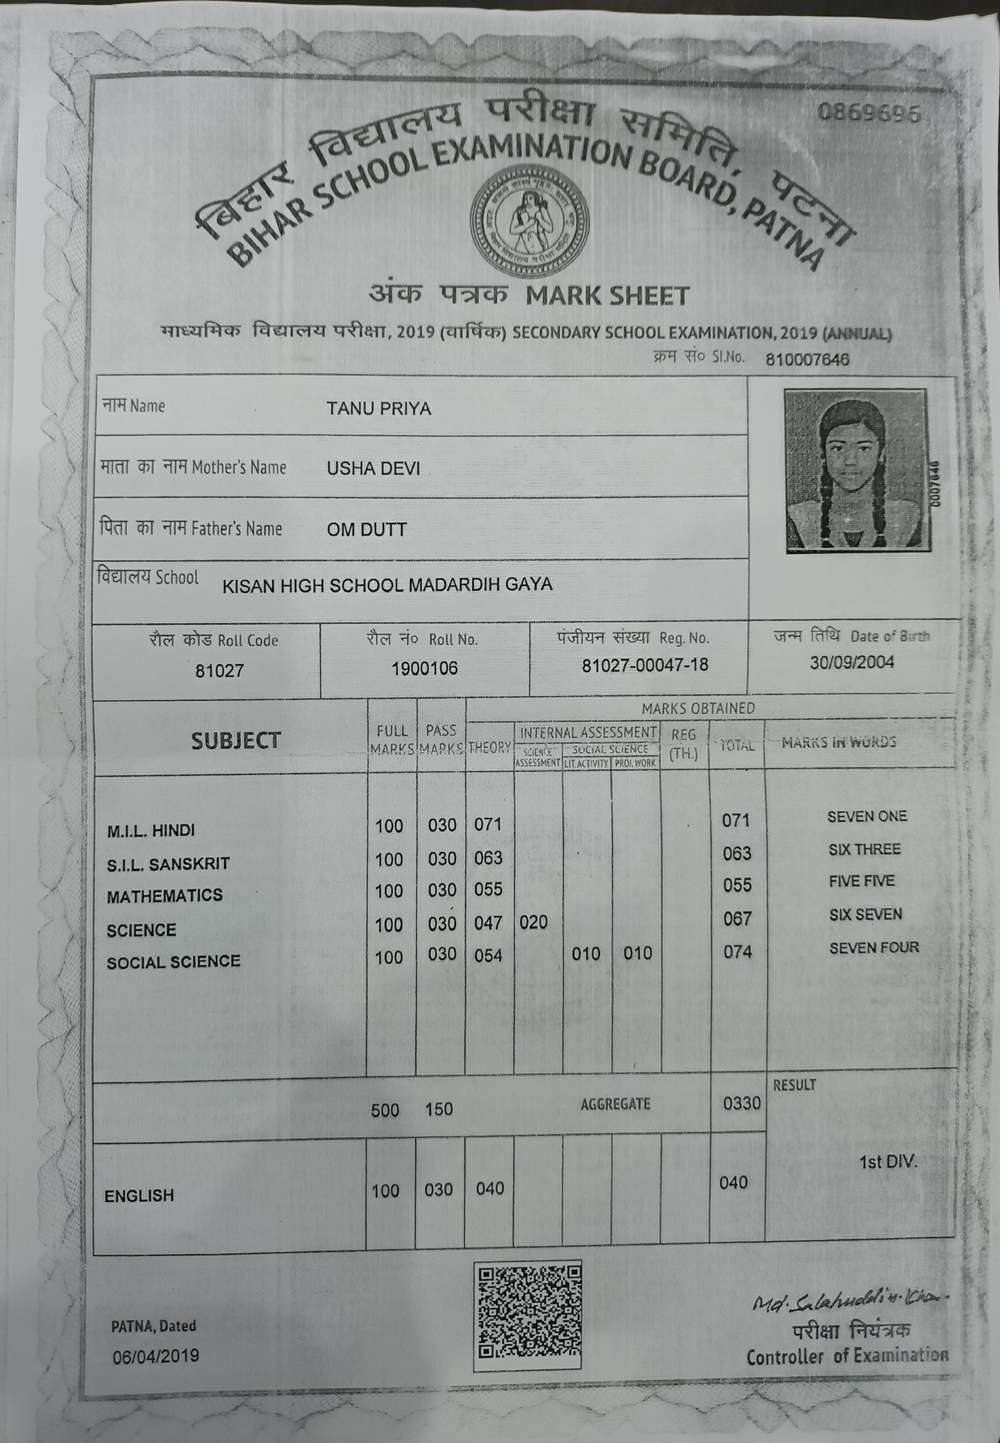 0869696
बिहार विद्यालय परीक्षा समिति, पटना
BIHAR SCHOOL EXAMINATION BOARD, PATNA
अंक पत्रक MARK SHEET
माध्यमिक विद्यालय परीक्षा, 2019 (वार्षिक) SECONDARY SCHOOL EXAMINATION, 2019 (ANNUAL)
क्रम सं० Sl.No. 810007646
नाम Name TANU PRIYA
माता का नाम Mother's Name USHA DEVI
0007646
पिता का नाम Father's Name OM DUTT
विद्यालय School KISAN HIGH SCHOOL MADARDIH GAYA
रौल कोड Roll Code रौल नं० Roll No. पंजीयन संख्या Reg. No. जन्म तिथि Date of Birth
81027 1900106 81027-00047-18 30/09/2004
MARKS OBTAINED
SUBJECT FULL MARKS PASS MARKS THEORY INTERNAL ASSESSMENT REG (TH.) TOTAL MARKS IN WORDS
SCIENCE ASSESSMENT SOCIAL SCIENCE
LIT.ACTIVITY PROJ.WORK
M.I.L. HINDI 100 030 071 071 SEVEN ONE
S.I.L. SANSKRIT 100 030 063 063 SIX THREE
MATHEMATICS 100 030 055 055 FIVE FIVE
SCIENCE 100 030 047 020 067 SIX SEVEN
SOCIAL SCIENCE 100 030 054 010 010 074 SEVEN FOUR
500 150 AGGREGATE 0330 RESULT
1st DIV.
ENGLISH 100 030 040 040
Md. Salahuddin Khan
PATNA, Dated परीक्षा नियंत्रक
06/04/2019 Controller of Examination